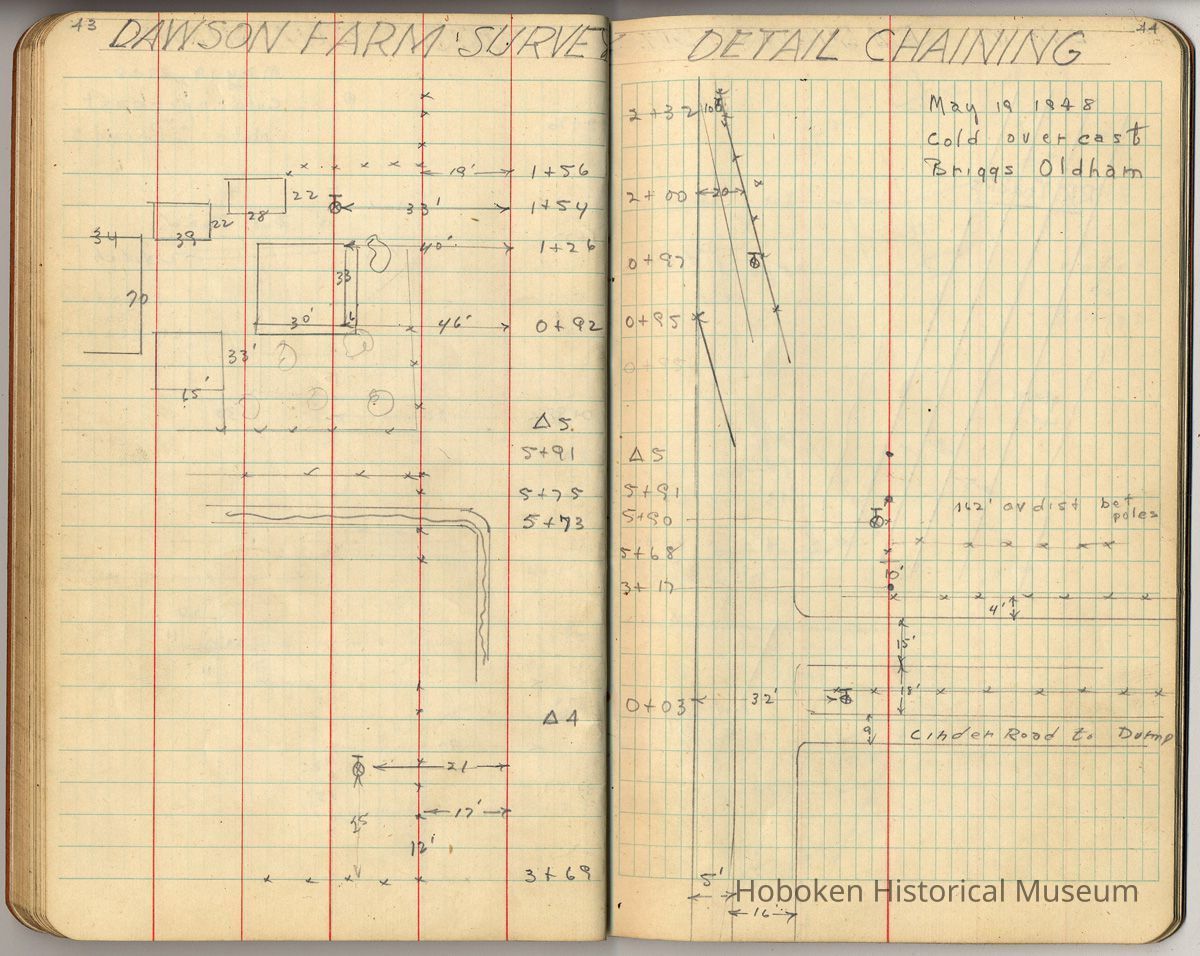 43
DAWSON FARM SURVEY
19' 1+56
22
28
33' 1+54
22
34
39
40' 1+26
33
70
30' 6 46' 0+92
33'
15'
Δ 5
5+91
5+75
5+73
Δ 4
21
17'
12'
3+69
44
DETAIL CHAINING
May 19 1948
Cold overcast
Briggs Oldham
2+32 10
2+00 20
0+97
0+95
Δ 5
5+91
5+90
162' av dist bet
poles
5+68
3+17
4'
15'
18'
0+03 32'
9
Cinder Road to Dump
5'
16'
Hoboken Historical Museum